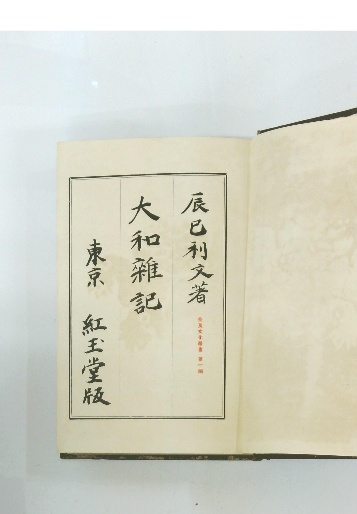 辰巳利文著
大和雜記
東京 紅玉堂版